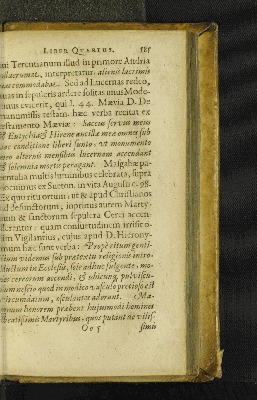 LIBER QUARTUS. 585
mi Terentianum illud in primore Andria
collacrumat, interpretatur: alienis lacrimis
accommodabat. Sed ad Lucernas redeo,
quas in sepulcris ardere solitas unus Mode-
stinus evicerit, qui l. 44. Mævia D. De
manumissis testam. hæc verba recitat ex
testamento Mæviæ: Saccus servus meus
& Eutychia & Hirene ancillæ meæ omnes sub
hac conditione liberi sunto: ut monumento
meo alternis mensibus lucernam accendant
& solemnia mortis peragant. Masgabæ pa-
rentalia multis luminibus celebrata, supra
docuimus ex Sueton. in vita Augusti c. 98.
Ex quo ritu ortum: ut & apud Christianos
ad defunctorum, inprimus autem Marty-
rum & sanctorum sepulcra Cerei accen-
derentur: quam consuetudinem irrisit o-
lim Vigilantius, cujus apud D. Hierony-
mum hæc sunt verba: Propè ritum genti-
lium videmus sub prætextu religionis intro-
ductum in Ecclesia, sole adhuc fulgente, mo-
les cereorum accendi, & ubicunq; pulviscu-
lum nescio quod in modico vasculo pretioso
circumdatum, osculantes adorant. Ma-
gnum honorem præbent hujusmodi homines
beatissimis Martyribus, quos putant de vilis-
Oo 5 simis